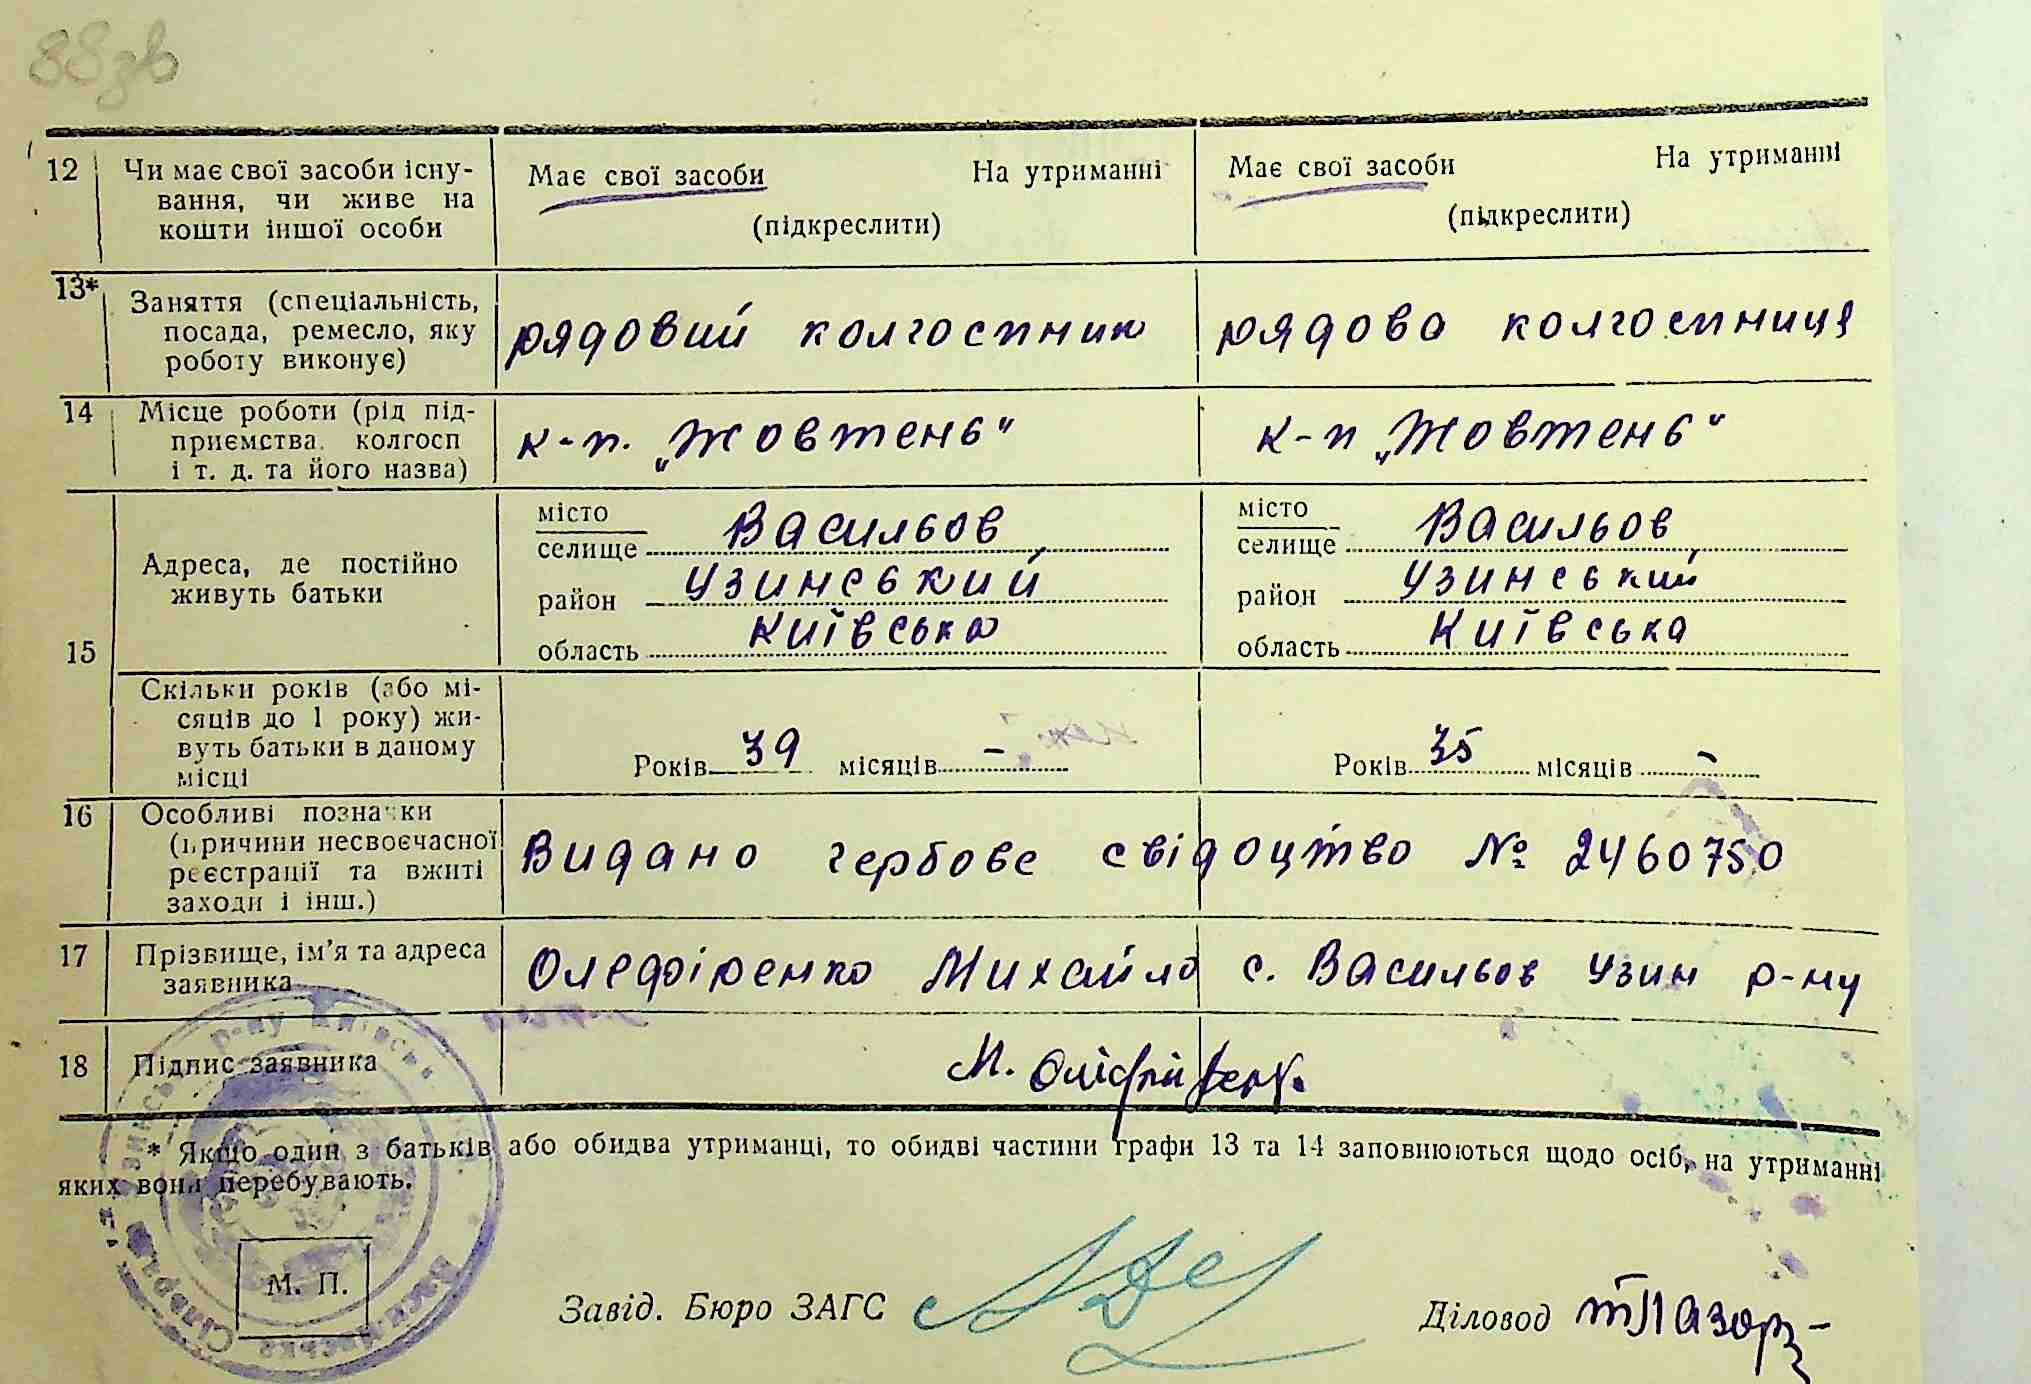 88зв
12 Чи має свої засоби існу- Має свої засоби На утриманні Має свої засоби На утриманні
вання, чи живе на (підкреслити) (підкреслити)
кошти іншої особи
13* Заняття (спеціальність,
посада, ремесло, яку рядовий колгоспник рядова колгоспниця
роботу виконує)
14 Місце роботи (рід під-
приємства, колгосп к-п. „Жовтень“ к-п „Жовтень“
і т. д. та його назва)
місто Васильов, місто Васильов,
селище селище
15 Адреса, де постійно район Узинський район Узинський
живуть батьки область Київська область Київська
Скільки років (або мі-
сяців до 1 року) жи-
вуть батьки в даному Років 39 місяців - Років 35 місяців -
місці
16 Особливі позначки
(причини несвоєчасної Видано гербове свідоцтво № 2460750
реєстрації та вжиті
заходи і інш.)
17 Прізвище, ім'я та адреса Олефіренко Михайло с. Васильов Узин р-ну
заявника
18 Підпис заявника М.
* Якщо один з батьків або обидва утриманці, то обидві частини графи 13 та 14 заповнюються щодо осіб, на утриманні
яких вони перебувають.
М. П.
Завід. Бюро ЗАГС Діловод